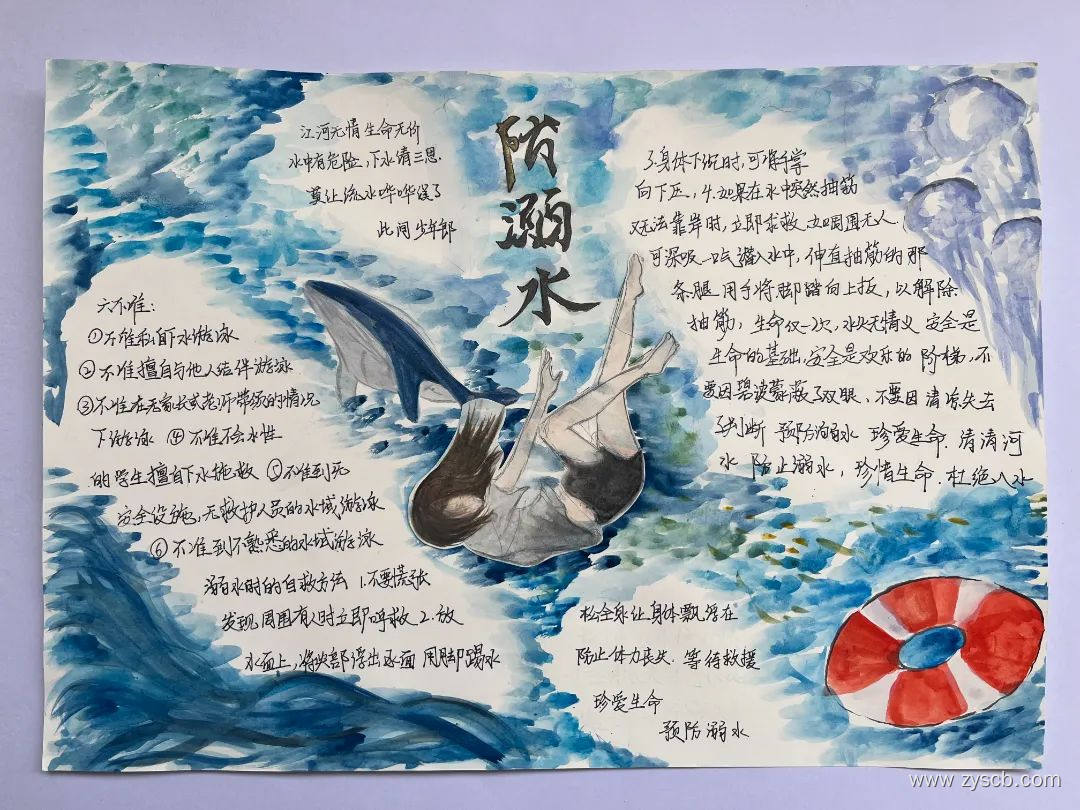 防溺水
江河无情生命无价
水中有危险,下水请三思.
莫让流水哗哗误了
此间少年郎
六不准:
①不准私自下水游泳
②不准擅自与他人结伴游泳
③不准在无家长或老师带领的情况
下游泳 ④不准不会水性
的学生擅自下水施救 ⑤不准到无
安全设施,无救护人员的水域游泳
⑥不准到不熟悉的水域游泳
溺水时的自救方法 1.不要慌张
发现周围有人时立即呼救 2.放
松全身让身体飘浮在
水面上,将头部浮出水面 用脚踢水
防止体力丧失. 等待救援
3身体下沉时,可将手掌
向下压, 4.如果在水中突然抽筋
又无法靠岸时,立即求救 如周围无人
可深吸一口气潜入水中, 伸直抽筋的那
条腿 用手将脚踏向上扳, 以解除
抽筋, 生命仅一次, 水火无情义 安全是
生命的基础,安全是欢乐的 阶梯,不
要因碧波蒙蔽了双眼, 不要因清凉失去
了判断 预防溺水 珍爱生命. 清清河
水 防止溺水, 珍惜生命. 杜绝入水
珍爱生命
预防溺水
www.zyscb.com